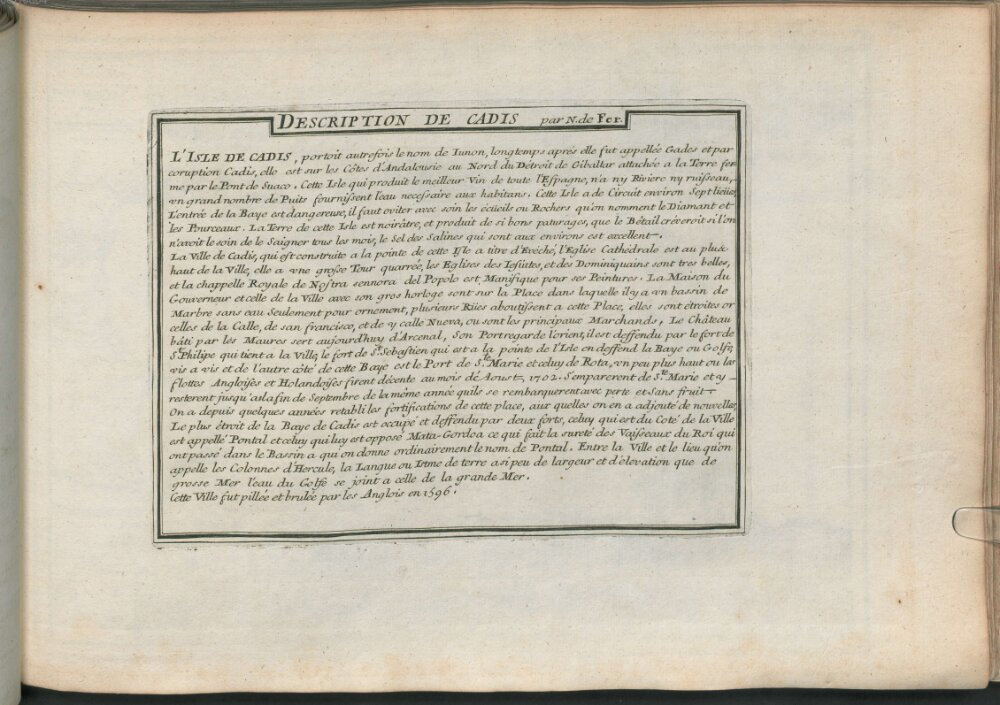 DESCRIPTION DE CADIS par N. de Fer.
L'ISLE DE CADIS, portoit autrefois le nom de Iunon, longtemps aprés elle fut appellée Gades et par
coruption Cadis, elle est sur les Côtes d'Andalousie au Nord du Détroit de Giballar attachée a la Terre fer
me par le Pont de Suaco. Cette Isle qui produit le meilleur Vin de toute l'Espagne, n'a ny Riviere ny ruisseau,
vn grand nombre de Puits fournissent l'eau necessaire aux habitans. Cette Isle a de Circuit environ Sept lieües
L'entrée de la Baye est dangereuse, il faut eviter avec soin les écüeils ou Rochers qu'on nomment le Diamant et
les Pourceaux. La Terre de cette Isle est noirâtre, et produit de si bons paturages, que le Bétail créveroit si l'on
n'avoit le soin de le Saigner tous les mois, le Sel des Salines qui sont aux environs est excellent.
La Ville de Cadis, qui est construite a la pointe de cette Isle a titre d'Evéché, l'Eglise Cathédrale est au plus
haut de la Ville, elle a vne grosse Tour quarrée, les Eglises des Iesüites, et des Dominiquains sont tres belles,
et la chappelle Royale de Nostra sennora del Popolo est Manifique pour ses Peintures. La Maison du
Gouverneur et celle de la Ville avec son gros horloge sont sur la Place dans laquelle il y a vn bassin de
Marbre sans eau Seulement pour ornement, plusieurs Rües aboutissent a cette Place, elles sont étroites or
celles de la Calle, de san francisco, et de y calle Nueva, ou sont les principaux Marchands. Le Château
bâti par les Maures sert aujourd'huy d'Arcenal, Son Port regarde l'orient, il est deffendu par le fort de
St. Philipe qui tient a la Ville, le fort de St. Sebastien qui est a la pointe de l'Isle en deffend la Baye ou Golfe,
vis a vis et de l'autre côté de cette Baye est le Port de Ste. Marie et celuy de Rota, vn peu plus haut ou les
flottes Angloises et Holandoises firent décente au mois dé Aoust, 1702. S'emparerent de Ste. Marie et y
resterent jusqu'a la fin de Septembre de la même année qu'ils se rembarquerent avec perte et Sans fruit
On a depuis quelques années retabli les fortifications de cette place, aux quelles on en a adjouté de nouvelles,
Le plus étroit de la Baye de Cadis est occupé et deffendu par deux forts, celuy qui est du Coté de la Ville
est appellé Pontal et celuy qui luy est opposé Mata-Gordoa ce qui fait la sureté des Vaisseaux du Roi qui
ont passé dans le Bassin a qui on donne ordinairement le nom de Pontal. Entre la Ville et le lieu qu'on
appelle les Colonnes d'Hercule, la Langue ou Istme de terre a si peu de largeur et d'élevation que de
grosse Mer l'eau du Golfe se joint a celle de la grande Mer.
Cette Ville fut pillée et brulée par les Anglois en 1596.